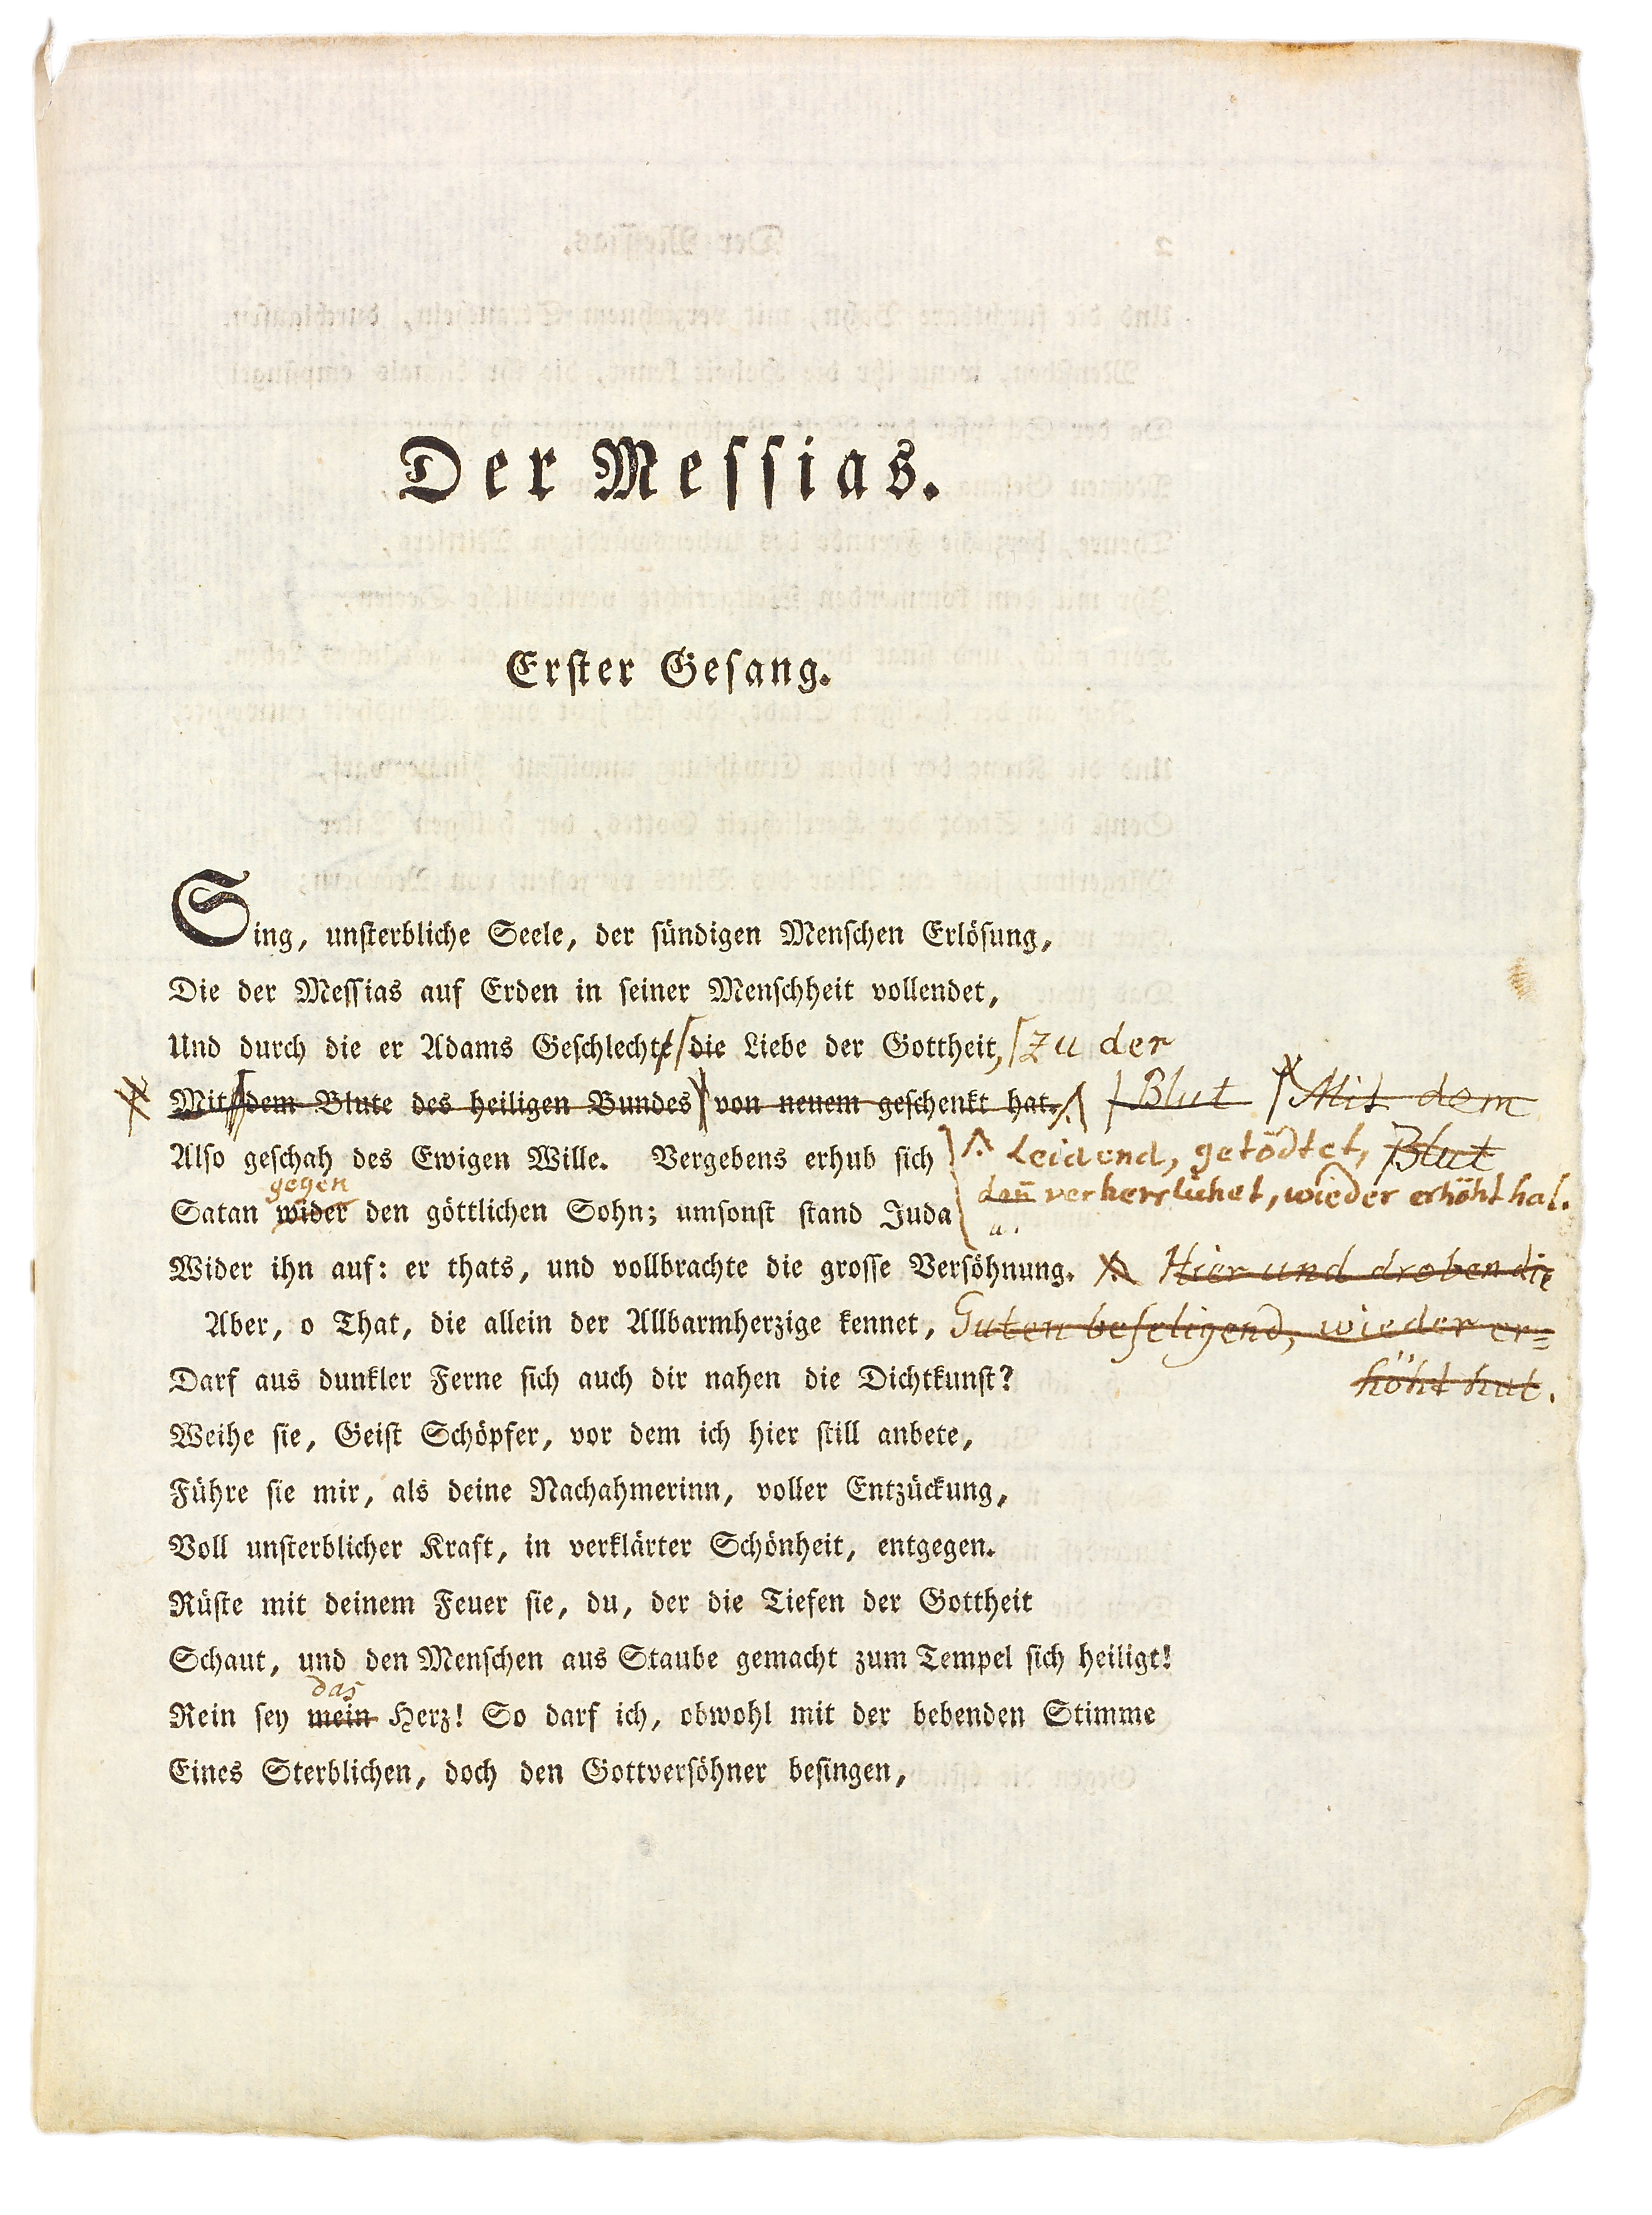 Der Messias.
Erster Gesang.
Sing, unsterbliche Seele, der sündigen Menschen Erlösung,
Die der Messias auf Erden in seiner Menschheit vollendet,
Und durch die er Adams Geschlechte die Liebe der Gottheit, zu der
Mit dem Blute des heiligen Bundes von neuem geschenkt hat. Blut Mit dem
Also geschah des Ewigen Wille. Vergebens erhub sich Leidend, getödtet, Blut
gegen
dañ verherrlichet, wieder erhöht hat.
Satan wider den göttlichen Sohn; umsonst stand Juda u.
Wider ihn auf: er thats, und vollbrachte die grosse Versöhnung. Hier und droben die
Aber, o That, die allein der Allbarmherzige kennet, Guten beseligend, wieder er=
Darf aus dunkler Ferne sich auch dir nahen die Dichtkunst? höht hat.
Weihe sie, Geist Schöpfer, vor dem ich hier still anbete,
Führe sie mir, als deine Nachahmerinn, voller Entzückung,
Voll unsterblicher Kraft, in verklärter Schönheit, entgegen.
Rüste mit deinem Feuer sie, du, der die Tiefen der Gottheit
Schaut, und den Menschen aus Staube gemacht zum Tempel sich heiligt!
das
Rein sey mein Herz! So darf ich, obwohl mit der bebenden Stimme
Eines Sterblichen, doch den Gottversöhner besingen,